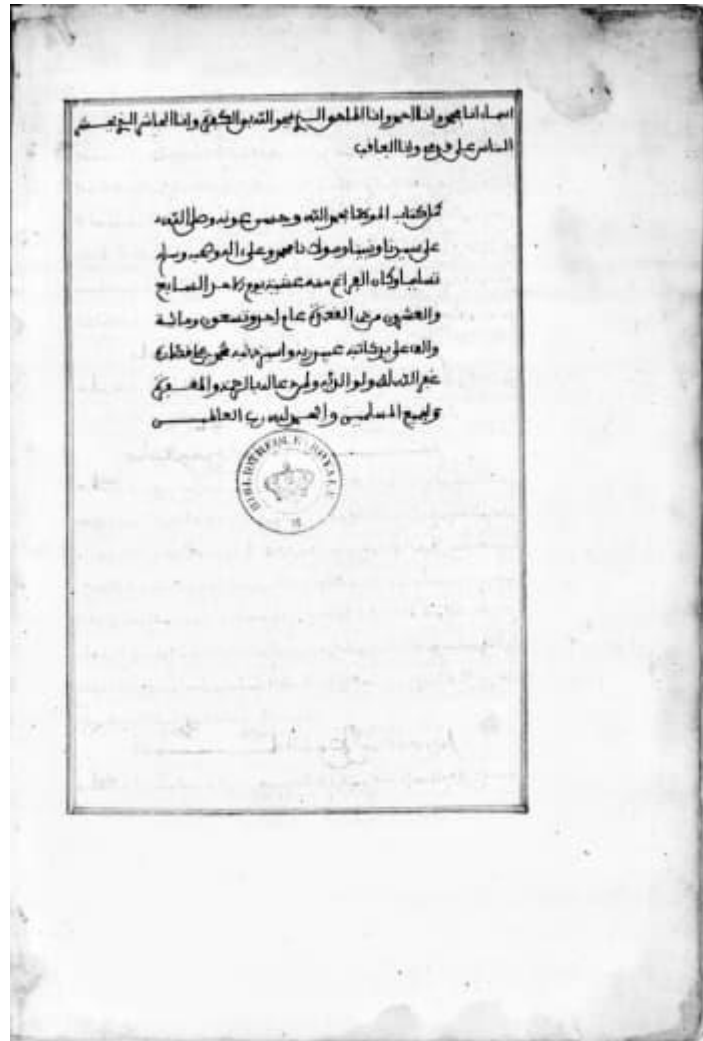 اسماء انا محمد وانا احمد وانا الماحي الذي يمحو الله بي الكفر وانا الحاشر الذي يحشر
الناس على قدمي وانا العاقب
كمل كتاب الموطا بحمد الله وحسن عونه وصلى الله
على سيدنا ونبينا ومولانا محمد وعلى اله وصحبه وسلم
تسليما وكان الفراغ منه عشية يوم الاحد السابع
والعشرين من ذي القعدة عام احد وتسعين ومائة
والف على يد كاتبه عبيد ربه واسير ذنبه محمد
غفر الله له ولوالديه ولمن دعا له بالرحمة والمغفرة
ولجميع المسلمين والحمد لله رب العالمين
BIBLIOTHEQUE ROYALE